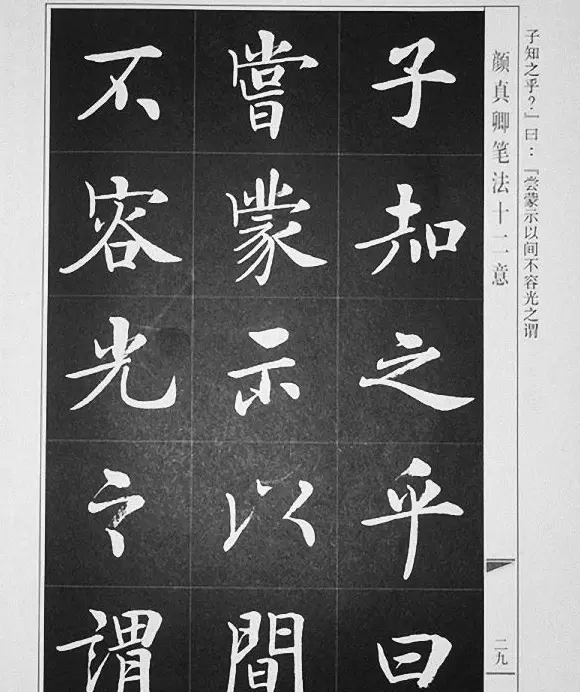 子知之乎？」曰：「尝蒙示以间不容光之谓
颜真卿笔法十二意
二九
子知之乎曰
嘗蒙示以間
不容光之謂